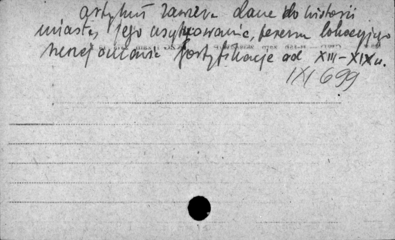 artykuł zawiera dane do historii
miasta, jego usytuowania, lokacyjnego
fortyfikacje od XIII-XIX w.
IX/699